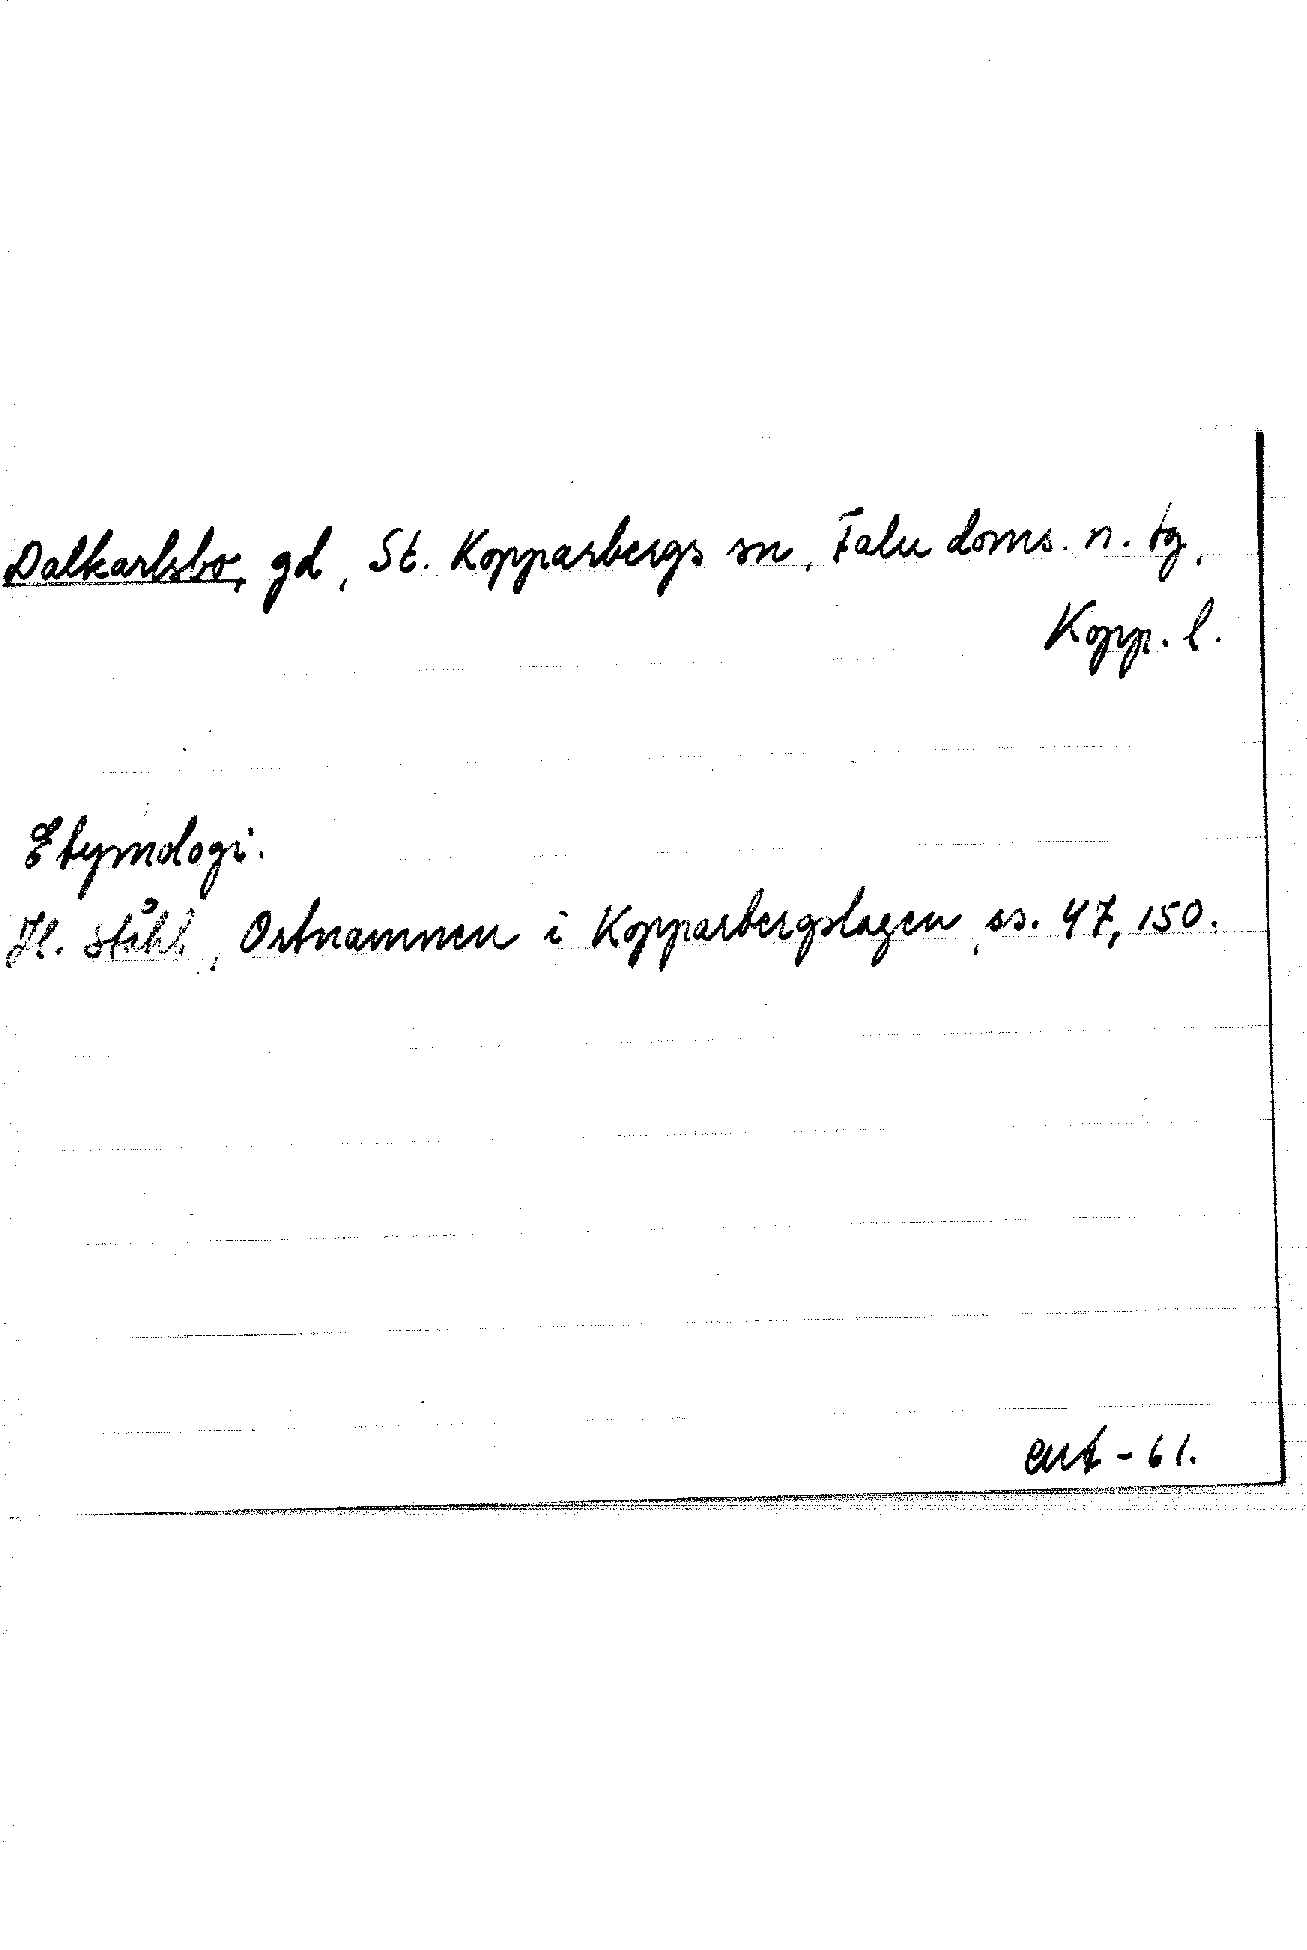 Dalkarlsbo, gd, St. Kopparbergs sn, Falu doms. n. tg,
Kopp. l.
Etymologi.
H. Ståhl, Ortnamnen i Kopparbergslagen, ss. 47, 150.
-61.